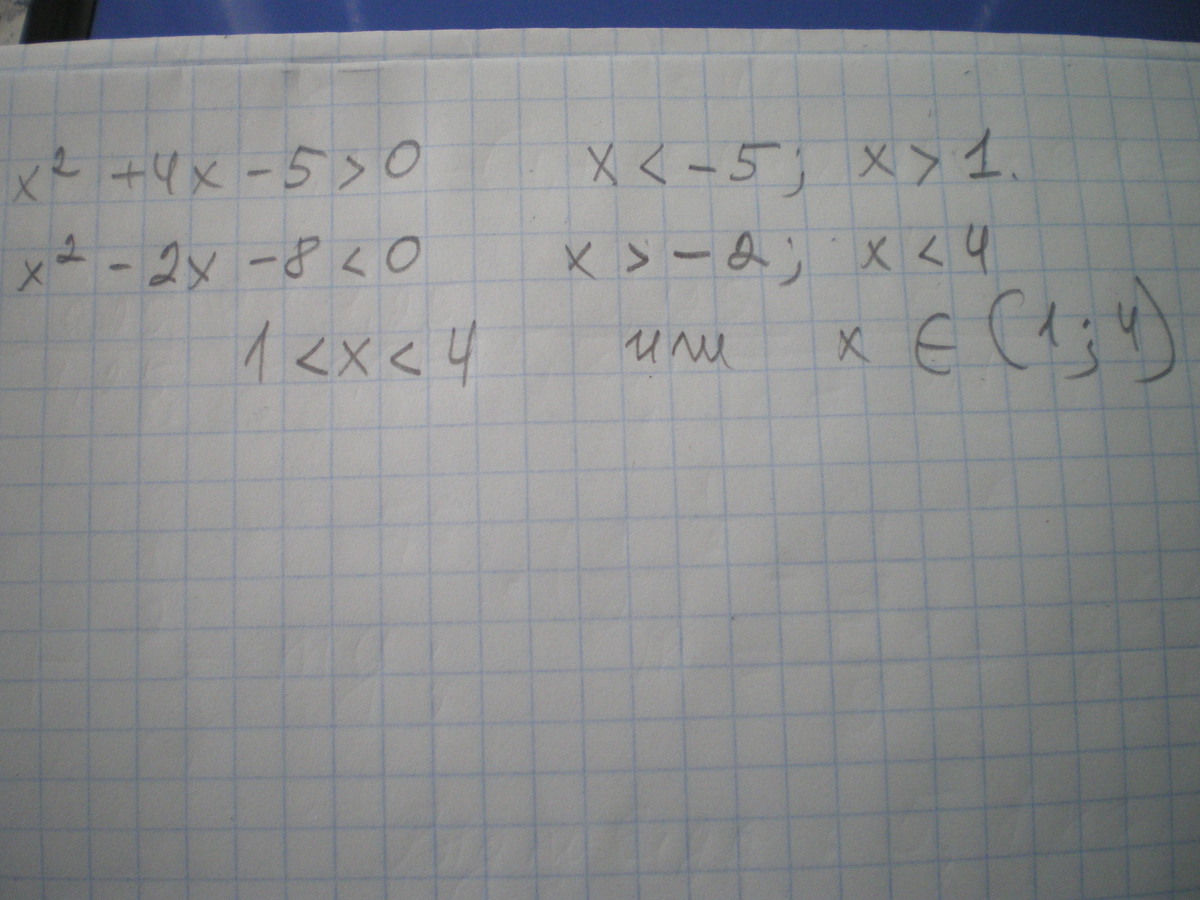 x² + 4x - 5 > 0 x < -5; x > 1.
x² - 2x - 8 < 0 x > -2; x < 4
1 < x < 4 или x ∈ (1; 4)